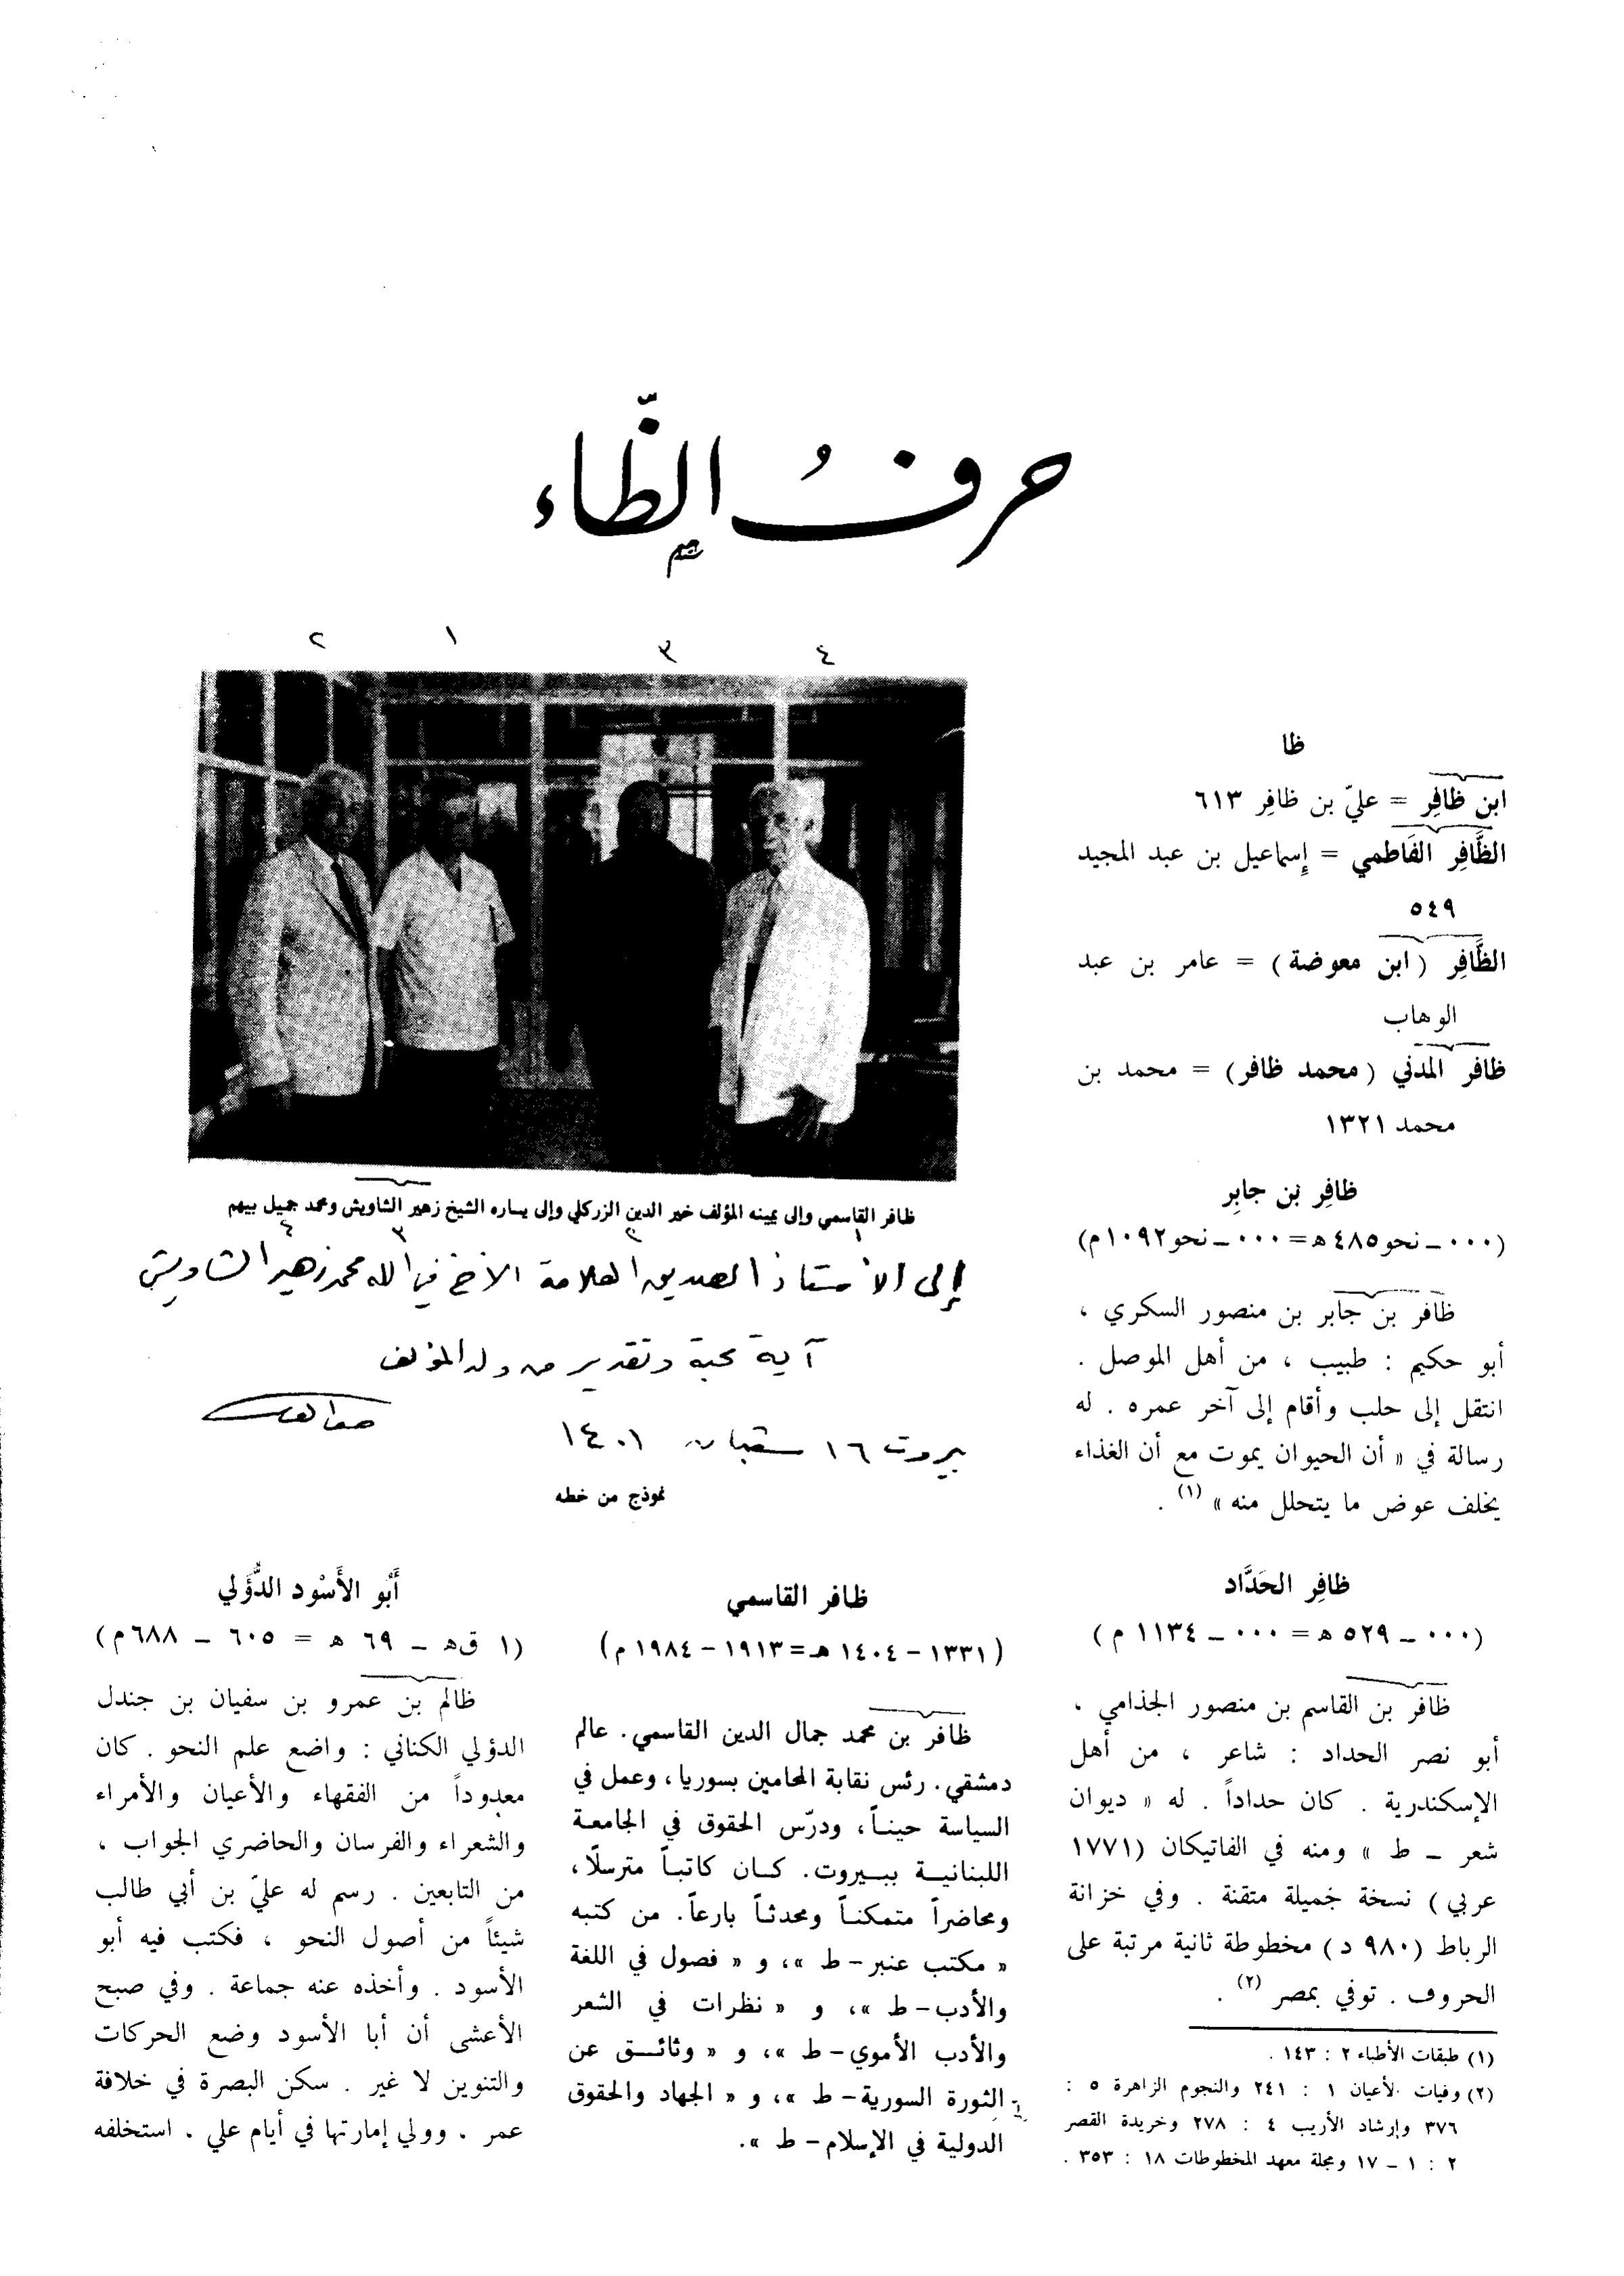 حرفُ الظّاء
٢ ١ ٣ ٤
ظافر القاسمي وإلى يمينه المؤلف خير الدين الزركلي وإلى يساره الشيخ زهير الشاويش ومحمد جميل بيهم
١ ٢ ٣ ٤
إلى الأستاذ الصديق العلامة الأخ في الله محمد زهير الشاويش
آية محبة وتقدير من ولد المؤلف
بيروت ١٦ شعبان ١٤٠١
نموذج من خطه
ظا
ابن ظافِر = عليّ بن ظافِر ٦١٣
الظَّافِر الفَاطمي = إسماعيل بن عبد المجيد
٥٤٩
الظَّافِر (ابن معوضة) = عامر بن عبد
الوهاب
ظافر المدني (محمد ظافر) = محمد بن
محمد ١٣٢١
ظافِر بن جابِر
(٠٠٠ ـ نحو ٤٨٥ ه = ٠٠٠ ـ نحو ١٠٩٢ م)
ظافر بن جابر بن منصور السكري ،
أبو حكيم : طبيب ، من أهل الموصل .
انتقل إلى حلب وأقام إلى آخر عمره . له
رسالة في « أن الحيوان يموت مع أن الغذاء
يخلف عوض ما يتحلل منه » (١) .
ظافِر الحَدَّاد
(٠٠٠ ـ ٥٢٩ ه = ٠٠٠ ـ ١١٣٤ م)
ظافر بن القاسم بن منصور الجذامي ،
أبو نصر الحداد : شاعر ، من أهل
الإسكندرية . كان حداداً . له « ديوان
شعر ـ ط » ومنه في الفاتيكان (١٧٧١
عربي) نسخة جميلة متقنة . وفي خزانة
الرباط (٩٨٠ د) مخطوطة ثانية مرتبة على
الحروف . توفي بمصر (٢) .
(١) طبقات الأطباء ٢ : ١٤٣ .
(٢) وفيات الأعيان ١ : ٢٤١ والنجوم الزاهرة ٥ :
٣٧٦ وإرشاد الأريب ٤ : ٢٧٨ وخريدة القصر
٢ : ١ ـ ١٧ ومجلة معهد المخطوطات ١٨ : ٣٥٣ .
ظافر القاسمي
(١٣٣١ - ١٤٠٤ هـ = ١٩١٣ - ١٩٨٤ م)
ظافر بن محمد جمال الدين القاسمي. عالم
دمشقي. رئس نقابة المحامين بسوريا، وعمل في
السياسة حيناً، ودرّس الحقوق في الجامعة
اللبنانية ببيروت. كان كاتباً مترسلًا،
ومحاضراً متمكناً ومحدثاً بارعاً. من كتبه
« مكتب عنبر - ط »، و « فصول في اللغة
والأدب - ط »، و « نظرات في الشعر
والأدب الأموي - ط »، و « وثائق عن
الثورة السورية - ط »، و « الجهاد والحقوق
الدولية في الإسلام - ط ».
أَبُو الأَسْود الدُّؤَلي
(١ ق ه ـ ٦٩ ه = ٦٠٥ ـ ٦٨٨ م)
ظالم بن عمرو بن سفيان بن جندل
الدؤلي الكناني : واضع علم النحو . كان
معدوداً من الفقهاء والأعيان والأمراء
والشعراء والفرسان والحاضري الجواب ،
من التابعين . رسم له عليّ بن أبي طالب
شيئاً من أصول النحو ، فكتب فيه أبو
الأسود . وأخذه عنه جماعة . وفي صبح
الأعشى أن أبا الأسود وضع الحركات
والتنوين لا غير . سكن البصرة في خلافة
عمر . وولي إمارتها في أيام علي . استخلفه